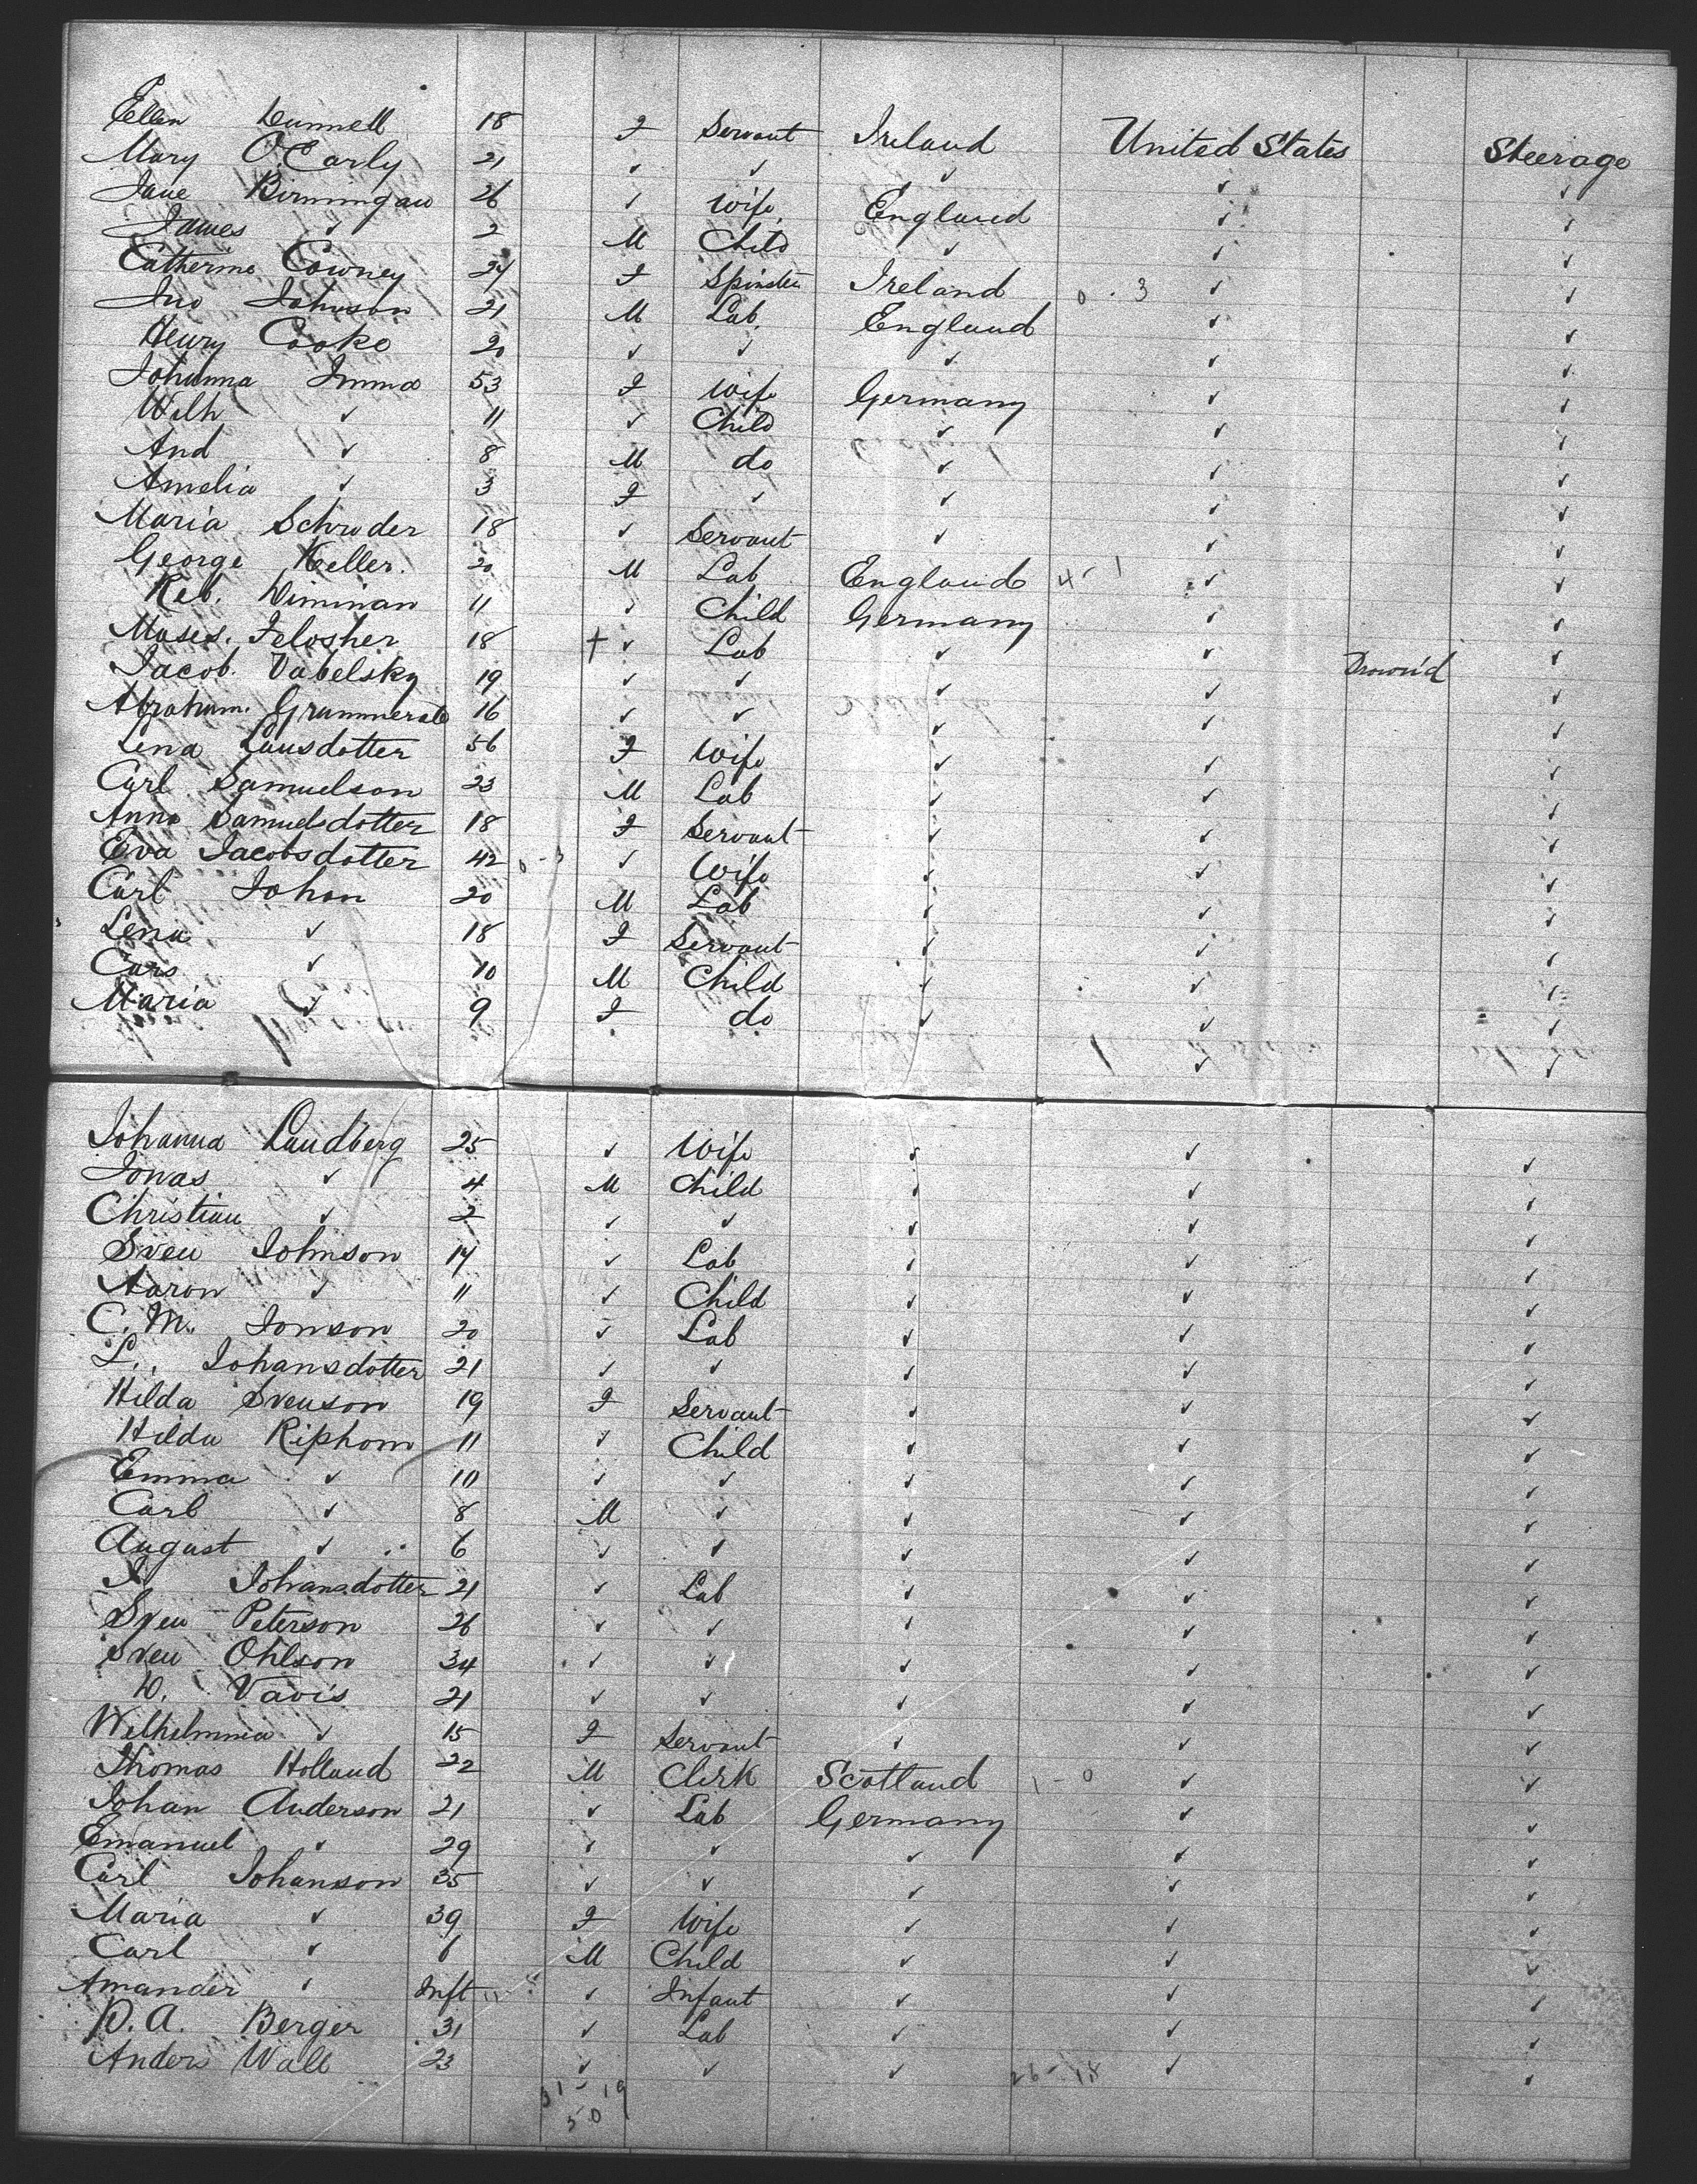 Ellen Dunnell 18 F Servant Ireland United States Steerage
Mary O'Carly 21 ✓ ✓ ✓ ✓ ✓
Jane Birmingau 26 ✓ Wife England ✓ ✓
James ✓ 2 M Child ✓ ✓ ✓
Catherine Cowney 24 F Spinster Ireland 0 . 3 ✓ ✓
Jno Johnson 21 M Lab England ✓ ✓
Henry Cooke 20 ✓ ✓ ✓ ✓ ✓
Johanna 53 F Wife Germany ✓ ✓
Wilh ✓ 11 ✓ Child ✓ ✓ ✓
And ✓ 8 M do ✓ ✓ ✓
Amelia ✓ 3 F ✓ ✓ ✓ ✓
Maria Schruder 18 ✓ Servant ✓ ✓ ✓
George Keller. 20 M Lab England 4 - 1 ✓ ✓
Reb. Diminan 11 ✓ Child Germany ✓ ✓
Moses. Felosher 18 + ✓ Lab ✓ ✓ Drown'd ✓
Jacob. Vabelsky 19 ✓ ✓ ✓ ✓ ✓
Abraham. 16 ✓ ✓ ✓ ✓ ✓
Lena 56 F Wife ✓ ✓ ✓
Carl Samuelson 23 M Lab ✓ ✓ ✓
Anna Samuelsdotter 18 F Servant ✓ ✓ ✓
Eva Jacobsdotter 42 0 - 3 ✓ Wife ✓ ✓ ✓
Carl Johan 20 M Lab ✓ ✓ ✓
Lena ✓ 18 F Servant ✓ ✓ ✓
Cars ✓ 10 M Child ✓ ✓ ✓
Maria ✓ 9 F do ✓ ✓ ✓
Johanna Landberg 25 ✓ Wife ✓ ✓ ✓
Jonas ✓ 4 M Child ✓ ✓ ✓
Christian ✓ 2 ✓ ✓ ✓ ✓ ✓
Sven Johnson 17 ✓ Lab ✓ ✓ ✓
Aaron ✓ 11 ✓ Child ✓ ✓ ✓
C. M. Jonson 20 ✓ Lab ✓ ✓ ✓
L. Johansdotter 21 ✓ ✓ ✓ ✓ ✓
Hilda Svenson 19 F Servant ✓ ✓ ✓
Hilda Riphom 11 ✓ Child ✓ ✓ ✓
Emma ✓ 10 ✓ ✓ ✓ ✓ ✓
Carl ✓ 8 M ✓ ✓ ✓ ✓
August ✓ 6 ✓ ✓ ✓ ✓ ✓
Johansdotter 21 ✓ Lab ✓ ✓ ✓
Sven Peterson 26 ✓ ✓ ✓ ✓ ✓
Sven Ohlson 34 ✓ ✓ ✓ ✓ ✓
D. Davis 21 ✓ ✓ ✓ ✓ ✓
Wilhelmina ✓ 15 F Servant ✓ ✓ ✓
Thomas Holland 22 M Clerk Scotland 1 - 0 ✓ ✓
Johan Anderson 21 ✓ Lab Germany ✓ ✓
Emanuel ✓ 29 ✓ ✓ ✓ ✓ ✓
Carl Johanson 35 ✓ ✓ ✓ ✓ ✓
Maria ✓ 39 F Wife ✓ ✓ ✓
Carl ✓ 6 M Child ✓ ✓ ✓
Amander ✓ Inft ✓ Infant ✓ ✓ ✓
P. A. Berger 31 ✓ Lab ✓ ✓ ✓
Anders Wall 23 ✓ ✓ ✓ 26 - 18 ✓ ✓
31 - 19
50